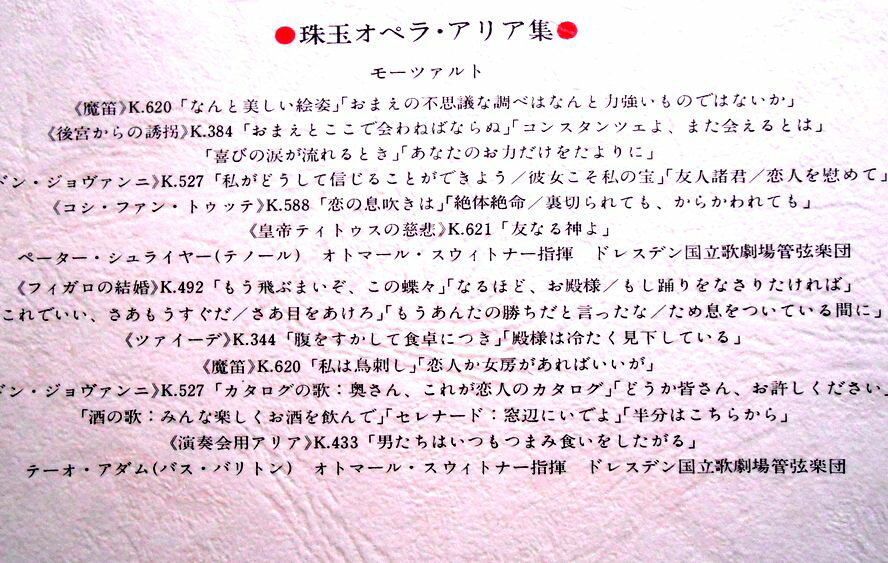 ●珠玉オペラ・アリア集●
モーツァルト
《魔笛》K.620「なんと美しい絵姿」「おまえの不思議な調べはなんと力強いものではないか」
《後宮からの誘拐》K.384「おまえとここで会わねばならぬ」「コンスタンツェよ、また会えるとは」
「喜びの涙が流れるとき」「あなたのお力だけをたよりに」
ドン・ジョヴァンニ》K.527「私がどうして信じることができよう/彼女こそ私の宝」「友人諸君/恋人を慰めて」
《コシ・ファン・トゥッテ》K.588「恋の息吹きは」「絶体絶命/裏切られても、からかわれても」
《皇帝ティトゥスの慈悲》K.621「友なる神よ」
ペーター・シュライヤー(テノール) オトマール・スウィトナー指揮 ドレスデン国立歌劇場管弦楽団
《フィガロの結婚》K.492「もう飛ぶまいぞ、この蝶々」「なるほど、お殿様/もし踊りをなさりたければ」
これでいい、さあもうすぐだ/さあ目をあけろ」「もうあんたの勝ちだと言ったな/ため息をついている間に」
《ツァイーデ》K.344「腹をすかして食卓につき」「殿様は冷たく見下している」
《魔笛》K.620「私は鳥刺し」「恋人か女房があればいいが」
ドン・ジョヴァンニ》K.527「カタログの歌:奥さん、これが恋人のカタログ」「どうか皆さん、お許しください」
「酒の歌:みんな楽しくお酒を飲んで」「セレナード:窓辺にいでよ」「半分はこちらから」
《演奏会用アリア》K.433「男たちはいつもつまみ食いをしたがる」
テーオ・アダム(バス・バリトン) オトマール・スウィトナー指揮 ドレスデン国立歌劇場管弦楽団